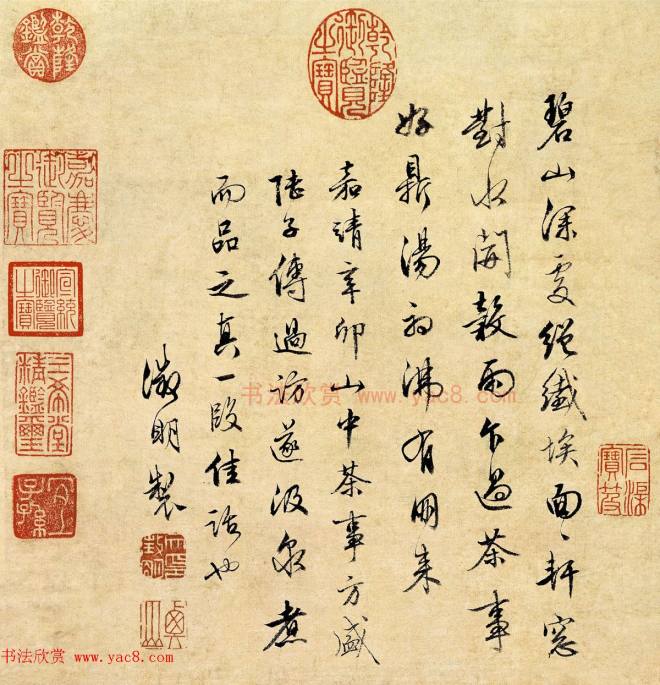 碧山深處絕纖埃面〻軒窓
對水開穀雨乍過茶事
好鼎湯初沸有朋來
嘉靖辛卯山中茶事方盛
陸子傳過訪遂汲泉煮
而品之真一段佳話也
徵明製
乾隆御覽之寶
乾隆鑑賞
嘉慶御覽之寶
宣統御覽之寶
三希堂精鑑璽
宜子孫
书法欣赏 www.yac8.com
书法欣赏 www.yac8.com